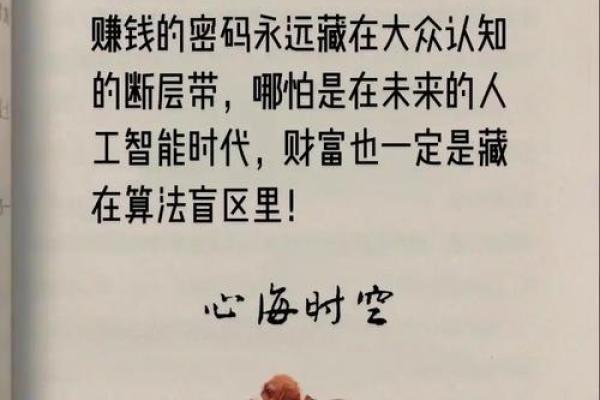 赚钱的密码永远藏在大众认知
的断层带，哪怕是在未来的人
工智能时代，财富也一定是藏
在算法盲区里！
心海时空